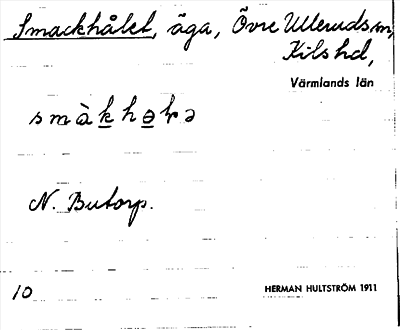 Smackhålet, äga, Övre Ulleruds sn,
Kils hd,
Värmlands län
smàk̲hɵ̲ɫə
N. Butorp.
10
HERMAN HULTSTRÖM 1911